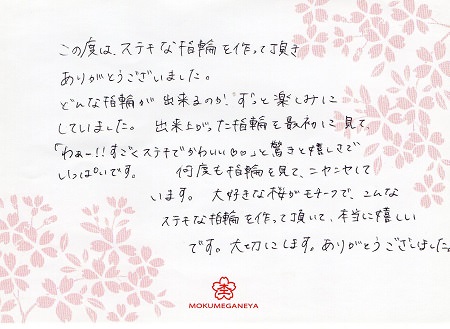 この度は、ステキな指輪を作って頂き
ありがとうございました。
どんな指輪が出来るのか、ずっと楽しみに
していました。 出来上がった指輪を最初に見て、
「わぁー!!すごくステキでかわいい♡♡」と驚きと嬉しさで
いっぱいです。 何度も指輪を見て、ニヤニヤして
います。 大好きな桜がモチーフで、こんな
ステキな指輪を作って頂いて、本当に嬉しい
です。大切にします。ありがとうございました。
MOKUMEGANEYA